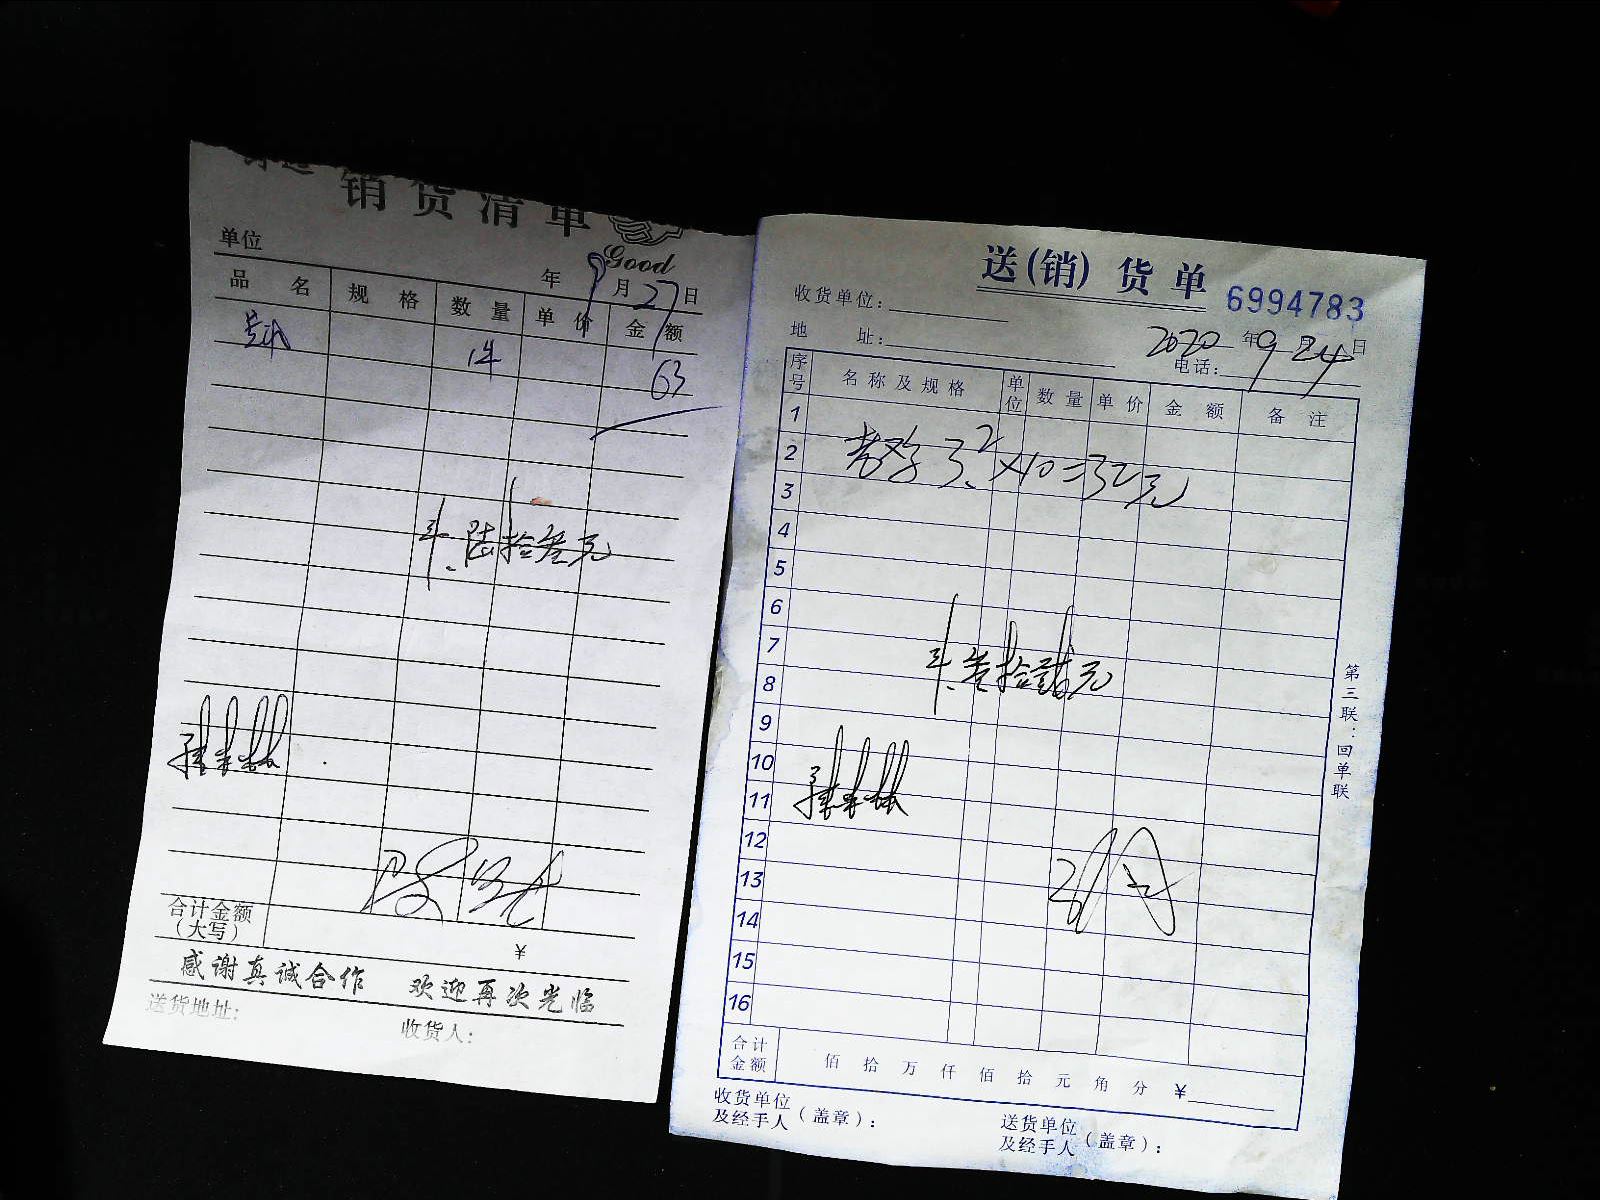 销货清单
Good
单位
年 9 月 27 日
品名 规格 数量 单价 金额
1件 63
计.陆拾叁元
合计金额
(大写)
¥
感谢真诚合作 欢迎再次光临
送货地址:
收货人:
送(销)货单
6994783
收货单位:
2020 年 9 月 24 日
地址:
电话:
序号 名称及规格 单位 数量 单价 金额 备注
1
2
3.2×10=32元
3
4
5
6
7
计.叁拾贰元
8
9
10
11
12
13
14
15
16
第三联:回单联
合计金额 佰 拾 万 仟 佰 拾 元 角 分 ¥
收货单位及经手人(盖章):
送货单位及经手人(盖章):